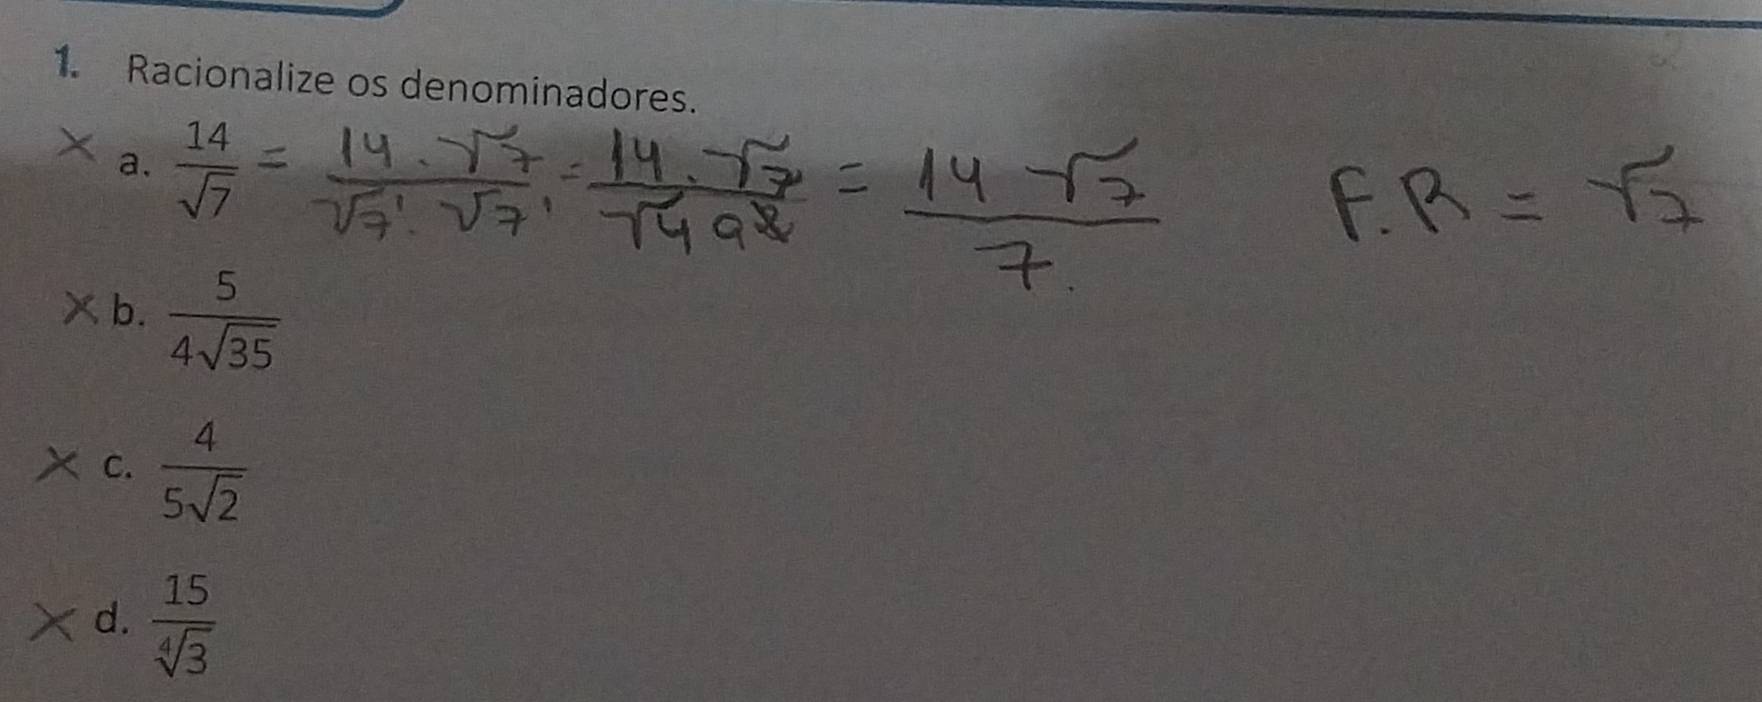 1. Racionalize os denominadores.
× a. 14/√7 = 14 . √7 / √7¹ . √7¹ = 14 . √7 / √49 = 14 √7 / 7. F.R = √7
× b. 5/4√35
× c. 4/5√2
× d. 15/∜3